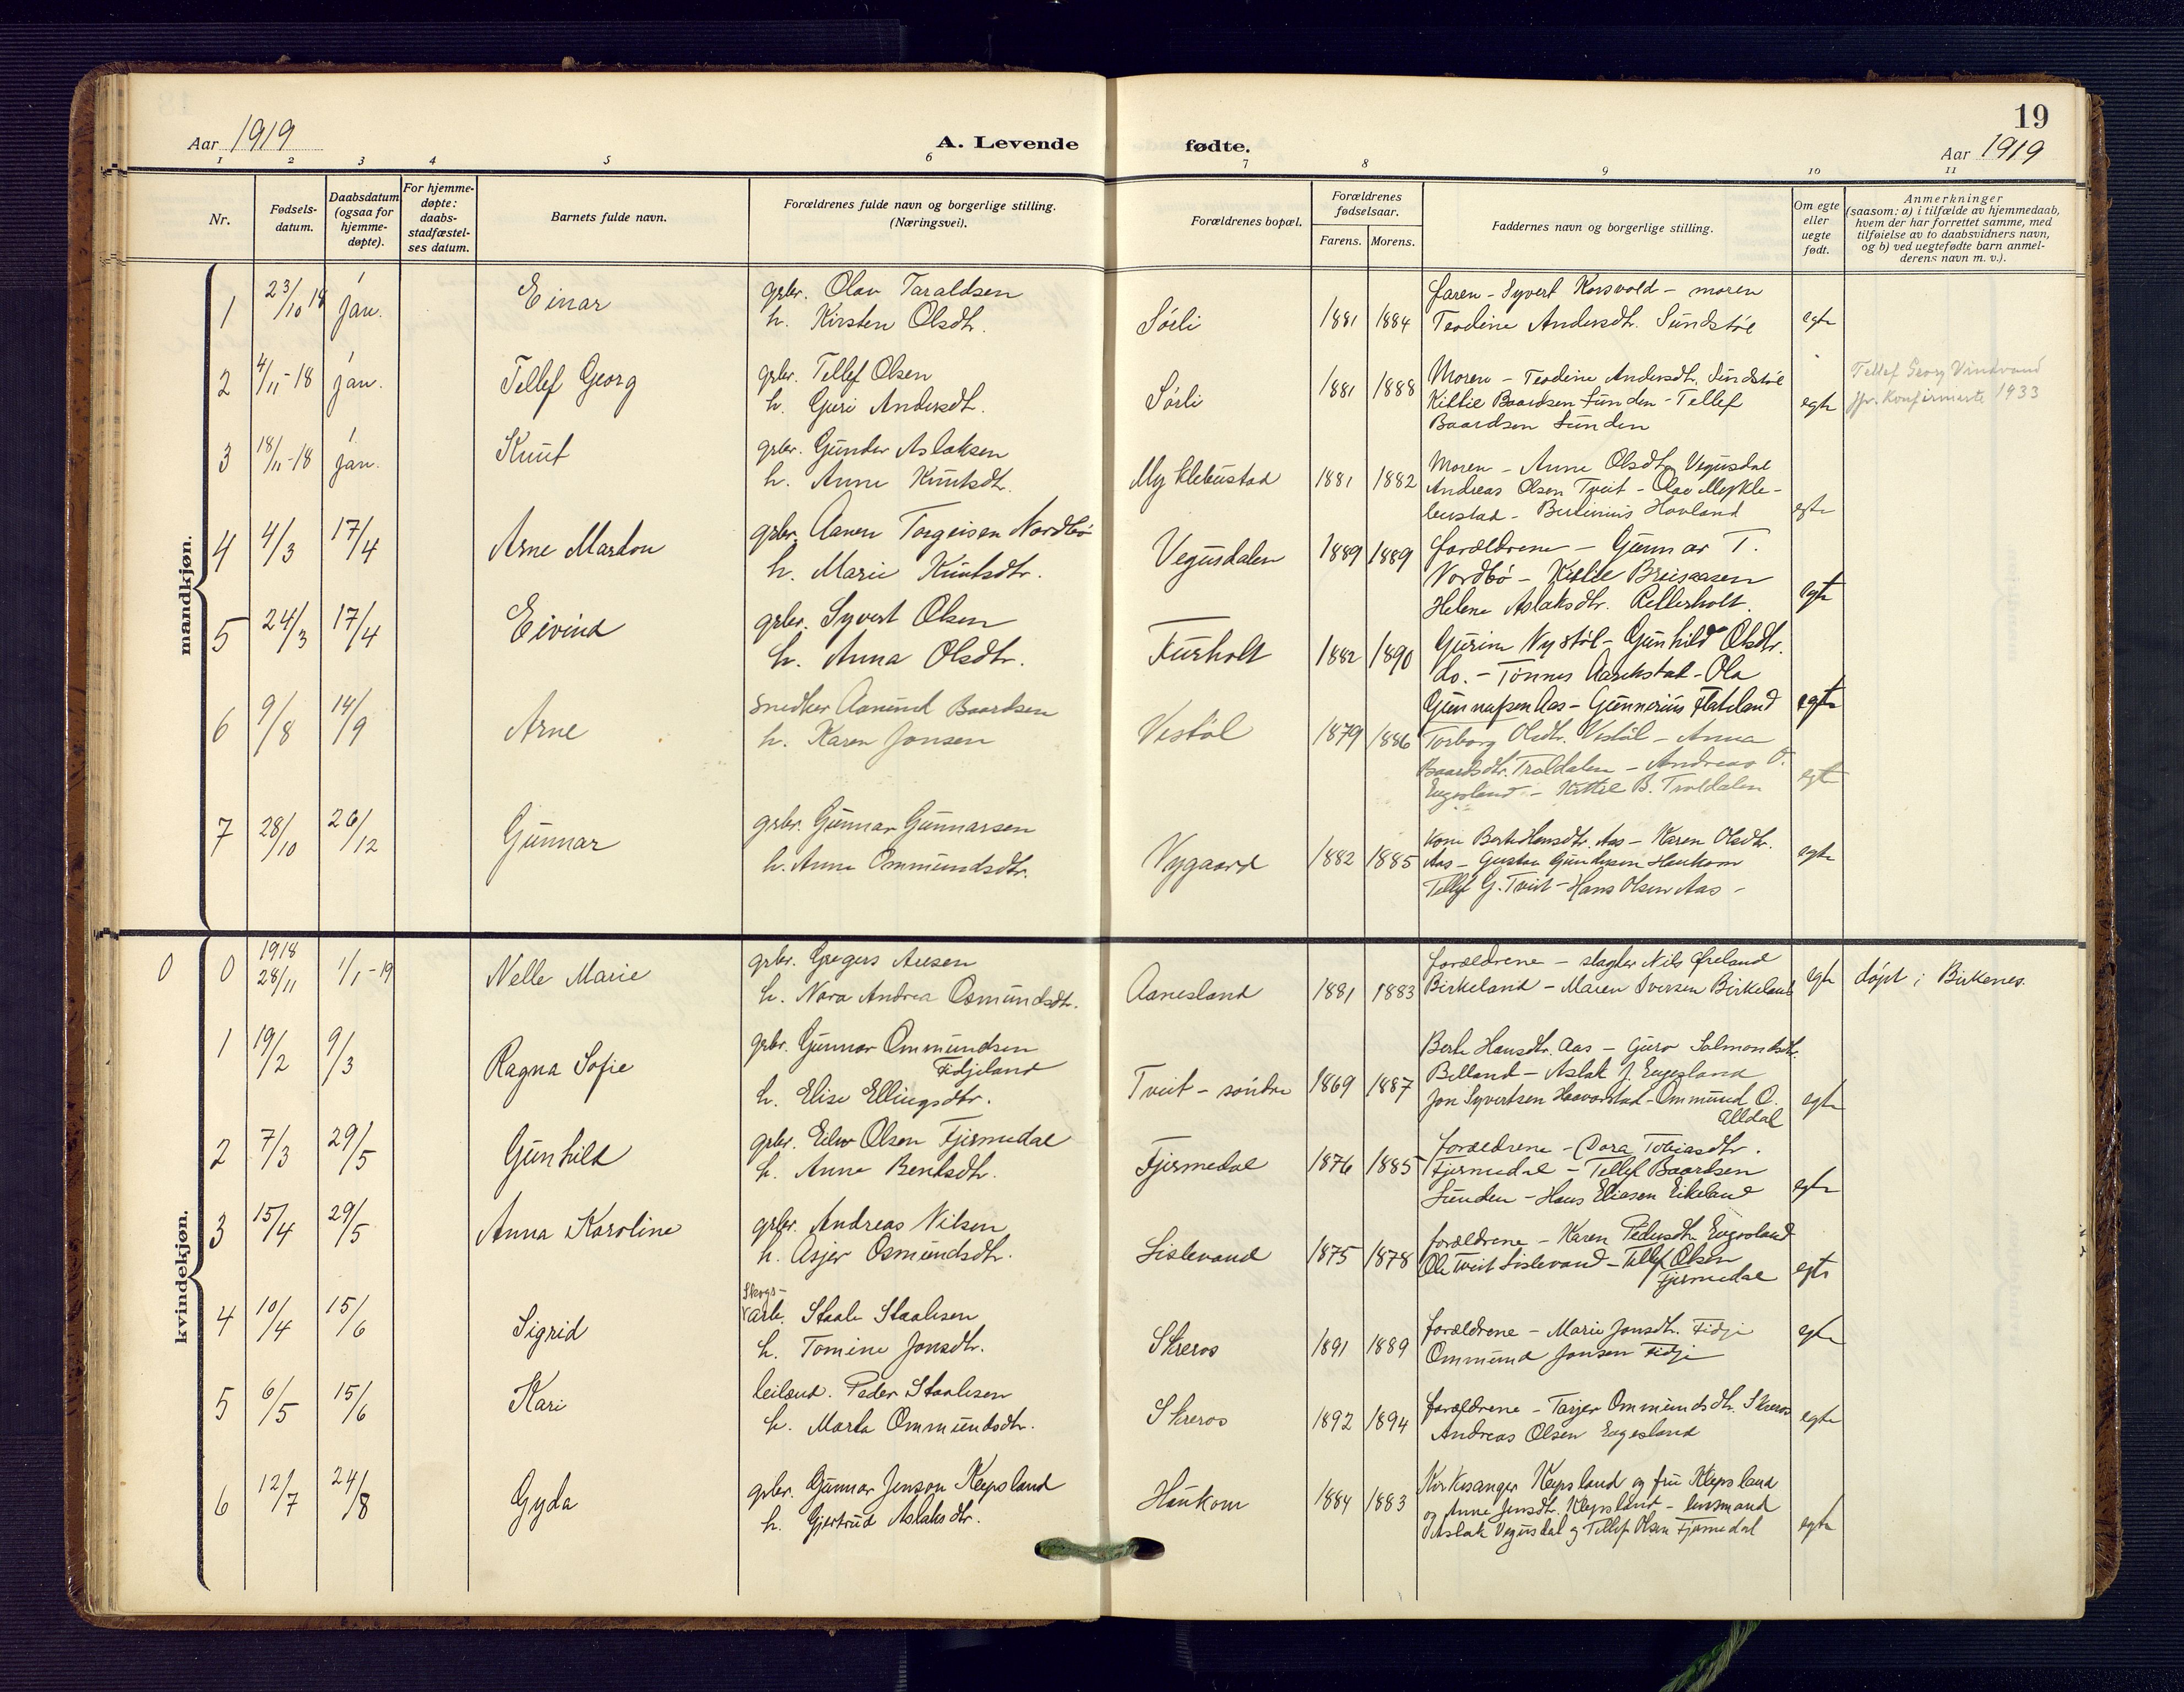 19
Aar 1919
A. Levende fødte.
Aar 1919
1 2 3 4 5 6 7 8 9 10 11
Nr.
Fødsels-
datum.
Daabsdatum
(ogsaa for
hjemme-
døpte).
For hjemme-
døpte:
daabs-
stadfæstel-
ses datum.
Barnets fulde navn.
Forældrenes fulde navn og borgerlige stilling.
(Næringsvei).
Forældrenes bopæl.
Forældrenes
fødselsaar.
Farens. Morens.
Faddernes navn og borgerlige stilling.
Om egte
eller
uegte
født.
Anmerkninger
(saasom: a) i tilfælde av hjemmedaab,
hvem der har forrettet samme, med
tilføielse av to daabsvidners navn,
og b) ved uegtefødte barn anmel-
derens navn m. v.).
mandkjøn.
1 23/10 18 1 jan. Einar
grbr. Olav Taraldsen
h. Kirsten Olsdtr.
Sørli 1881 1884
faren - Syvert Korsvold - moren
Teodine Andersdtr. Sundstøl
egte
2 4/11-18 1 jan. Tellef Georg
grbr. Tellef Olsen
h. Guri Andersdtr.
Sørli 1881 1888
Moren - Teodine Andersdtr. Sundstøl
Kittil Baardsen Sunden - Tellef
Baardsen Sunden
egte
Tellef Georg Vindvand
jfr. Konfirmerte 1933
3 18/11-18 1 jan. Knut
grbr. Gunder Aslaksen
h. Anne Knutsdtr.
Myklebustad 1881 1882
Moren - Anne Olsdtr. Vegusdal
Andreas Olsen Tveit - Olav Mykle-
bustad - Bertinius Hovland
egte
4 4/3 17/4 Arne Marton
grbr. Aanen Torgeisen Nordbø
h. Marie Knutsdtr.
Vegusdalen 1889 1889
forældrene - Gunnar T.
Nordbø - Kittil Breisaasen
Helene Aslaksdtr. Rellerholt.
egte
5 24/3 17/4 Eivind
grbr. Syvert Olsen
h. Anna Olsdtr.
Furholt 1882 1890
Gurine Nystøl - Gunhild Olsdtr.
do. - Tønnes Aarikstad - Ola
Gunnarsen Aas - Gunnerius Flateland
egte
6 9/8 14/9 Arne
Snedker Aanund Baardsen
h. Karen Jonsen
Vestøl 1879 1886
Torborg Olsdtr. Vestøl - Anna
Baardsdtr. Troldalen - Andreas O.
Engesland - Kittil B. Troldalen
egte
7 28/10 26/12 Gunnar
grbr. Gunnar Gunnarsen
h. Anne Ommundsdtr.
Nygaard 1882 1885
Kone Berte Hansdtr. Aas - Karen Olsdtr.
Aas - Gustav Gundersen Haukom
Tellef G. Tveit - Hans Olsen Aas -
egte
kvindekjøn.
0 0 1918 28/11 1/1-19 Nelle Marie
grbr. Gregers Aresen
h. Nora Andrea Osmundsdtr.
Aanesland 1881 1883
forældrene - slagter Nils
Birkeland - Maren Iversen Birkeland
egte døpt i Birkenes.
1 19/2 9/3 Ragna Sofie
grbr. Gunnar Ommundsen
Fidjeland
h. Elise Ellingsdtr.
Tveit - søndre 1869 1887
Berte Hansdtr. Aas - Guro Salmondsdtr.
Belland - Aslak J. Engesland
Jon Syvertsen Haavorstad - Ommund O.
Alldal
egte
2 7/3 29/5 Gunhild
grbr. Eilev Olsen Fjermedal
h. Anne Bentsdtr.
Fjermedal 1876 1885
forældrene - Dora Tobiasdtr.
Fjermedal - Tellef Baardsen
Sunden - Hans Eliasen Eikeland
egte
3 15/4 29/5 Anna Karoline
grbr. Andreas Nilsen
h. Asjer Osmundsdtr.
Lislevand 1875 1878
forældrene - Karen Pedersdtr. Engesland
Ole Tveit Lislevand - Tellef Olsen
Fjermedal
egte
4 10/4 15/6 Sigrid
Skogs-
arb. Staale Staalesen
h. Tomine Jonsdtr.
Skreros 1891 1889
forældrene - Marie Jonsdtr. Fidje
Ommund Jonsen Fidje
egte
5 6/5 15/6 Kari
leilend. Peder Staalesen
h. Marta Ommundsdtr.
Skreros 1892 1894
forældrene - Tarjer Ommundsdtr. Skreros
Andreas Olsen Engesland
egte
6 12/7 24/8 Gyda
grbr. Gunnar Jenson Klepsland
h. Gjertrud Aslaksdtr.
Haukom 1884 1883
Kirkesanger Klepsland og fru Klepsland
og Anne Jensdtr. Klepsland - lensmand
Aslak Vegusdal og Tellef Olsen Fjermedal
egte